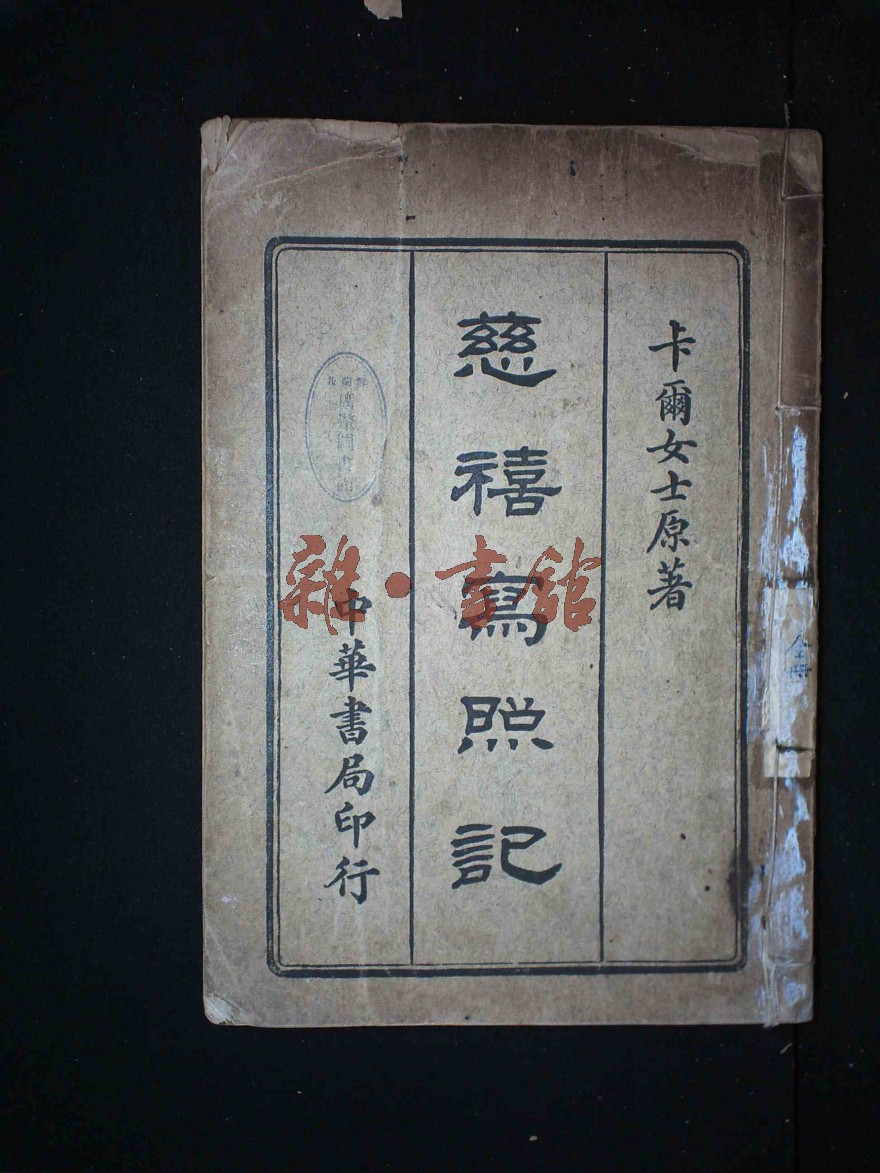 卡爾女士原著
慈禧寫照記
中華書局印行
雜·書館
全冊